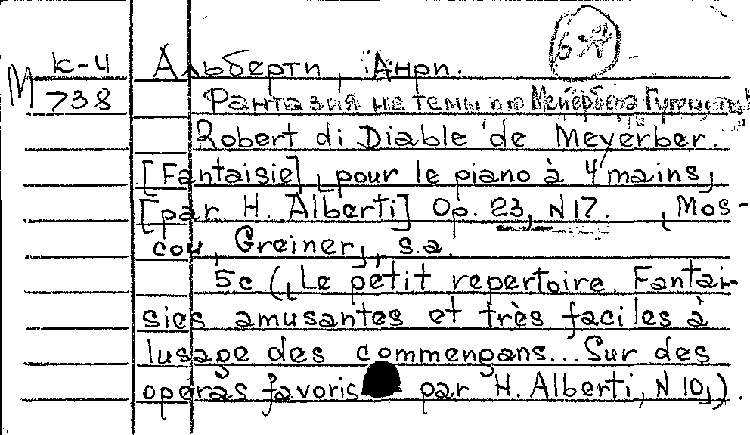 6 А
К-4 Альберти, Анри.
М 738 Фантазия на темы оп Мейербера
Robert di Diable de Meyerber.
[Fantaisie] „pour le piano à 4 mains„
[par H. Alberti] Op. 23, N 17. „Mos-
cou, Greiner„, s.a.
5c („Le petit repertoire Fantai-
sies amusantes et très faciles à
lusage des commençans... Sur des
operas favoris par H. Alberti, N 10„).